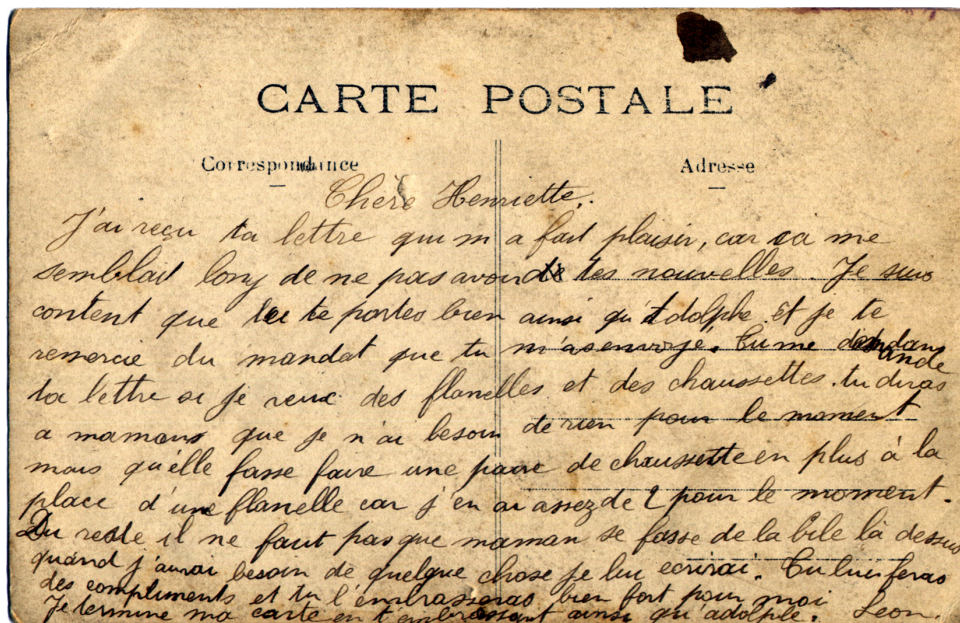 CARTE POSTALE
Correspondance Adresse
Chère Henriette.
J'ai reçu ta lettre qui m'a fait plaisir, car ca me
semblait long de ne pas avoir de tes nouvelles. Je suis
content que tu te portes bien ainsi qu'Adolphe. Et je te
remercie du mandat que tu m'as envoye. Tu me demande dans
ta lettre si je veux des flanelles et des chaussettes. tu diras
a maman que je n'ai besoin de rien pour le moment
mais qu'elle fasse faire une paire de chaussette en plus à la
place d'une flanelle car j'en ai assez de 2 pour le moment.
Du reste il ne faut pas que maman se fasse de la bile là dessus
quand j'aurai besoin de quelque chose je lui ecrirai. Tu lui feras
des compliments et tu l'embrasseras bien fort pour moi
Je termine ma carte en t'embrassant ainsi qu'adolphe. Leon.